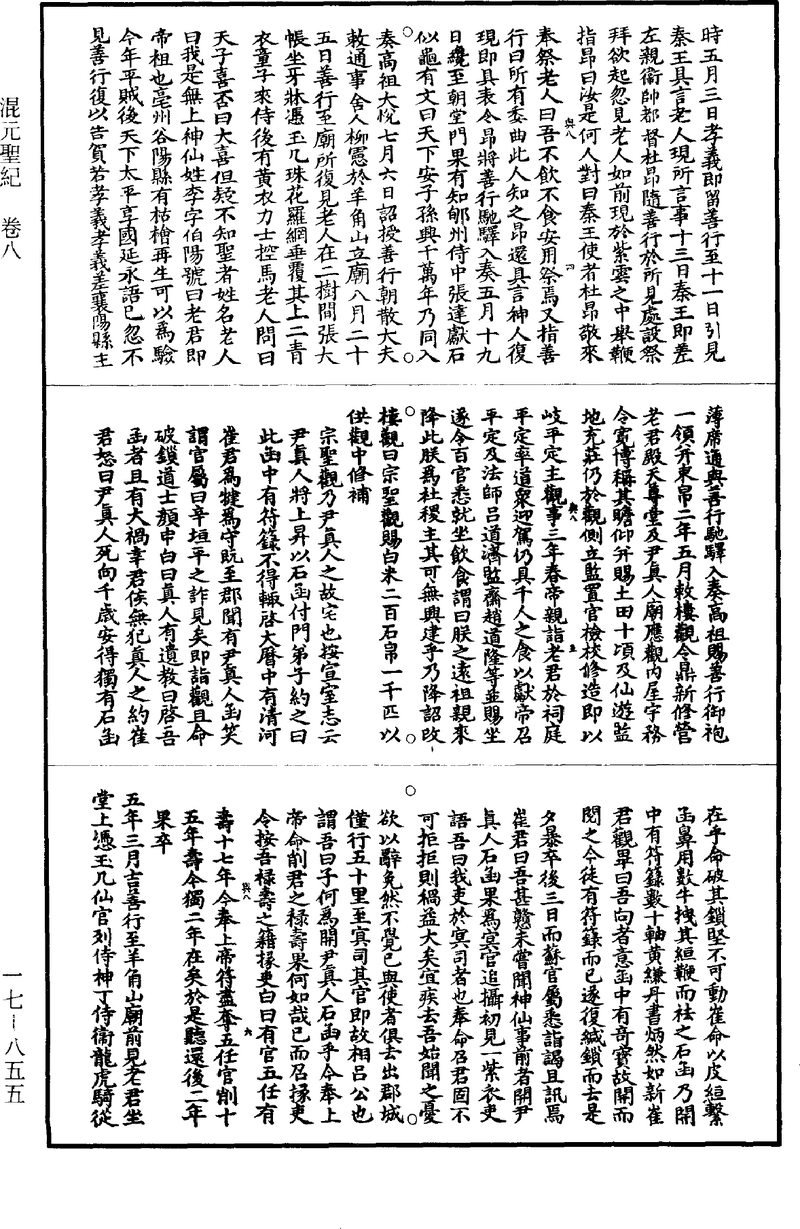 混元聖紀　卷八
時五月三日孝義即留善行至十一日引見
秦王具言老人現所言事十三日秦王即差
左親衛帥都督杜昂隨善行於所見處設祭
拜欲起忽見老人如前現於紫雲之中舉鞭
指昂曰汝是何人對曰秦王使者杜昂敬來
奉祭老人曰吾不飲不食安用祭焉又指善
行曰所有委曲此人知之昂還具言神人復
現即具表令昂將善行馳驛入奏五月十九
日纔至朝堂門果有知郇州侍中張達獻石
似龜有文曰天下安子孫興千萬年乃同入
奏高祖大悅七月六日詔授善行朝散大夫
敕通事舍人柳憲於羊角山立廟八月二十
五日善行至廟所復見老人在二樹間張大
帳坐牙牀憑玉几珠花羅網垂覆其上二青
衣童子來侍後有黃衣力士控馬老人問曰
天子喜否曰大喜但疑不知聖者姓名老人
曰我是無上神仙姓李字伯陽號曰老君即
帝祖也亳州谷陽縣有枯檜再生可以為驗
今年平賊後天下太平享國延永語已忽不
見善行復以告賀若孝義孝義差襄陽縣主
薄席通與善行馳驛入奏高祖賜善行御袍
一領并束帛二年五月敕樓觀令鼎新修營
老君殿天尊堂及尹真人廟應觀內屋宇務
令寬博稱其瞻仰并賜土田十頃及仙遊監
地充莊仍於觀側立監置官檢校修造即以
岐平定主觀事三年春帝親詣老君於祠庭
平定率道衆迎駕仍具千人之食以獻帝召
平定及法師呂道濟監齋趙道隆等並賜坐
遂令百官悉就坐飲食謂曰朕之遠祖親來
降此朕為社稷主其可無興建乎乃降詔改
樓觀曰宗聖觀賜白米二百石帛一千匹以
供觀中修補
宗聖觀乃尹真人之故宅也按宣室志云
尹真人將上昇以石函付門弟子約之曰
此函中有符籙不得輒啓大曆中有清河
崔君為犍為守既至郡聞有尹真人函笑
謂官屬曰辛垣平之詐見矣即詣觀且命
破鎖道士顏中白曰真人有遺教曰啓吾
函者且有大禍幸君侯無犯真人之約崔
君怒曰尹真人死向千歲安得獨有石函
在乎命破其鎖堅不可動崔命以皮絙繫
函鼻用數牛拽其絙鞭而袪之石函乃開
中有符籙數十軸黃縑丹書炳然如新崔
君觀畢曰吾向者意函中有奇寶故開而
閱之今徒有符籙而已遂復緘鎖而去是
夕暴卒後三日而蘇官屬悉詣謁且訊焉
崔君曰吾甚戇未嘗聞神仙事前者開尹
真人石函果為冥官追攝初見一紫衣吏
語吾曰我吏於冥司者也奉命召君固不
可拒拒則禍益大矣宜疾去吾始聞之憂
欲以辭免然不覺已與使者俱去出郡城
僅行五十里至冥司其官即故相呂公也
謂吾曰子何為開尹真人石函乎今奉上
帝命削君之祿壽果何如哉已而召掾吏
令按吾祿壽之籍掾吏白曰有官五任有
壽十七年今奉上帝符盡奪五任官削十
五年壽今獨二年在矣於是聽還後二年
果卒
五年三月吉善行至羊角山廟前見老君坐
堂上憑玉几仙官列侍神丁侍衛龍虎騎從
一七—八五五